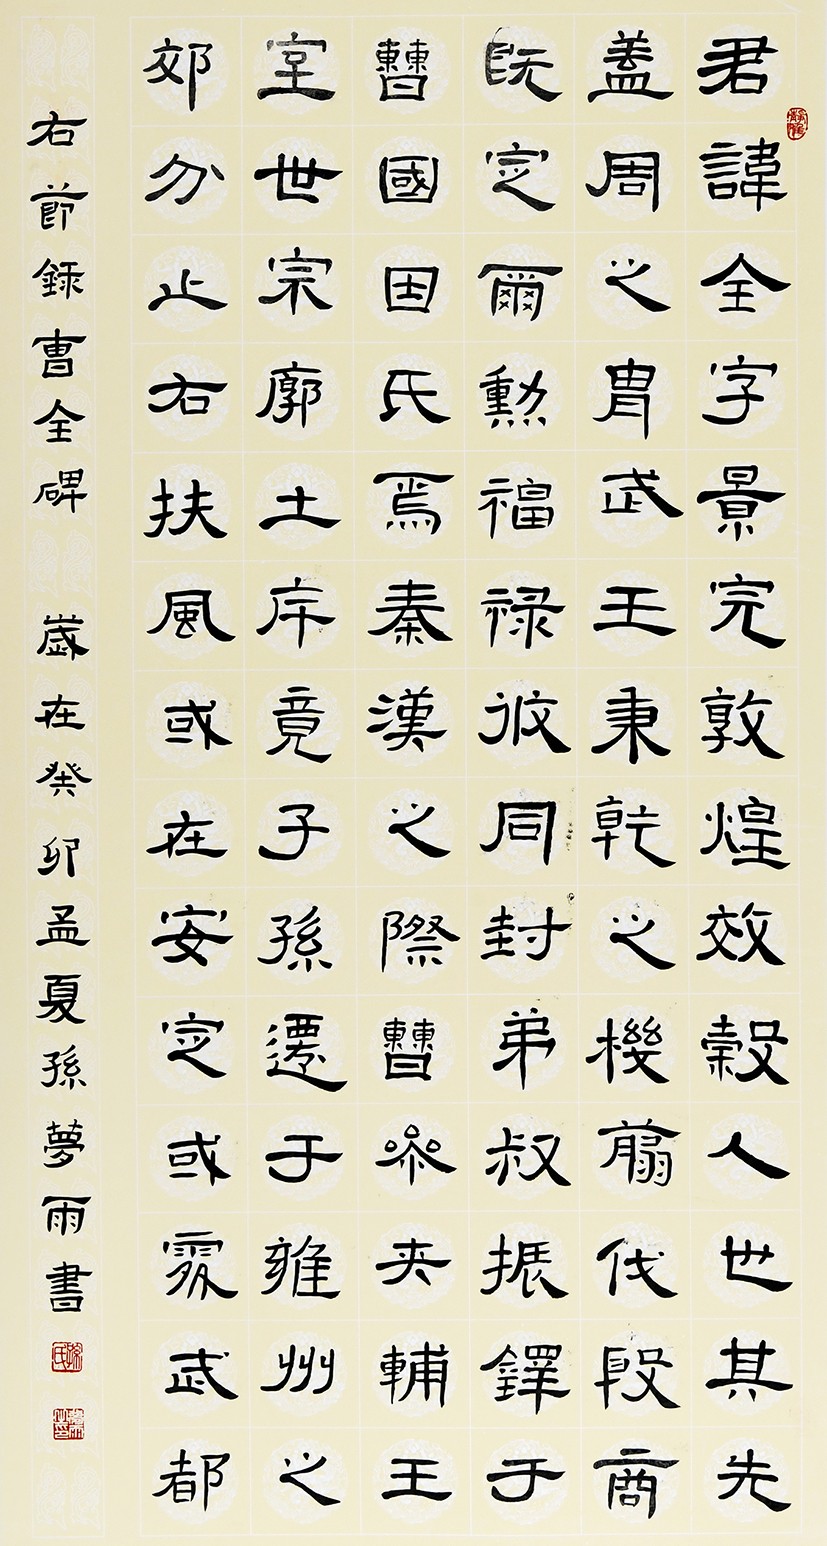 君諱全字景完敦煌效穀人也其先
蓋周之胄武王秉乾之機翦伐殷商
既定爾勳福祿攸同封弟叔振鐸于
曹國因氏焉秦漢之際曹參夾輔王
室世宗廓土斥竟子孫遷于雍州之
郊分止右扶風或在安定或處武都
右節錄曹全碑 歲在癸卯孟夏孫夢雨書